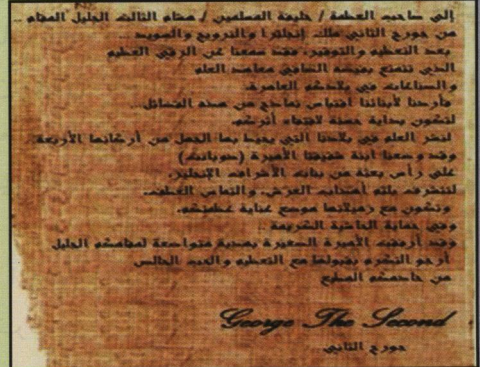 إلى صاحب العظمة / خليفة المسلمين / هشام الثالث الجليل المقام ..
من جورج الثاني ملك إنجلترا والنرويج والسويد ...
بعد التعظيم والتوقير، فقد سمعنا عن الرقي العظيم
الذي تتمتع بفيضه الصافي معاهد العلم
والصناعات في بلادكم العامرة.
فأردنا لأبنائنا اقتباس نماذج من هذه الفضائل...
لتكون بداية حسنة لاقتفاء أثركم.
لنشر العلم في بلادنا التي يحيط بها الجهل من أركانها الأربعة
وقد وضعنا ابنة شقيقنا الأميرة (دوبانت)
على رأس بعثة من بنات الأشراف الإنجليز.
لتتشرف بلثم أهداب العرش، والتماس العطف.
وتكون مع زميلاتها موضع عناية عظمتكم.
وفي حماية الحاشية الكريمة ..
وقد أرفقت الأميرة الصغيرة بهدية متواضعة لمقامكم الجليل
أرجو التكرم بقبولها مع التعظيم والحب الخالص
من خادمكم المطيع
George The Second
جورج الثاني